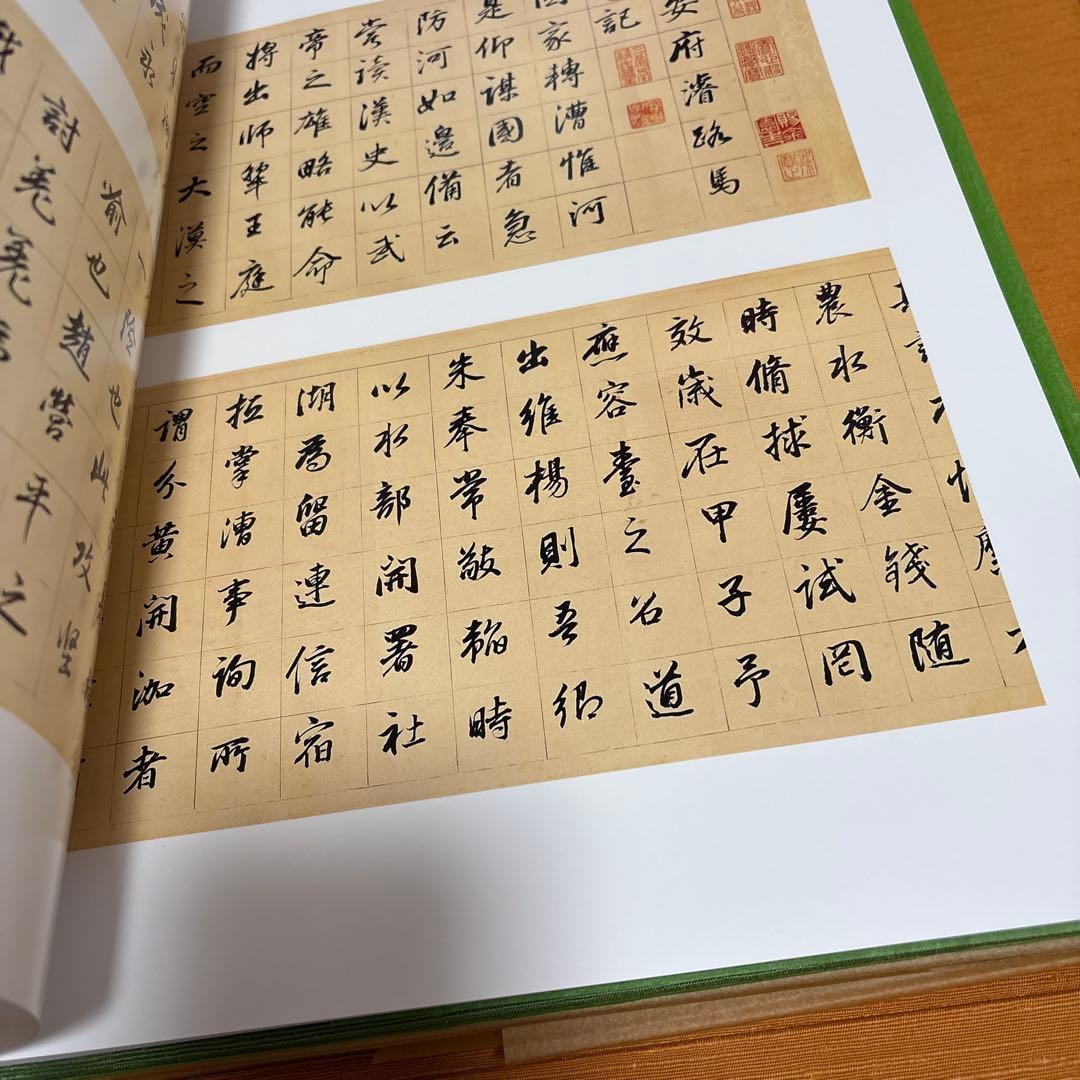 安府濬路馬
記
國家轉漕惟河
是仰謀國者急
防河如邊備云
嘗读漢史以武
帝之雄略能命
將出师犂王庭
而空之大漠之
農水衡金錢随
時脩捄屡試罔
效歲在甲子予
應容臺之召道
出維楊則吾鄉
朱奉常敬韜時
以水部開署社
湖爲留連信宿
拉掌漕事询所
謂分黄開泇者
討羗羗
喻也趙营平之
也此攻坚